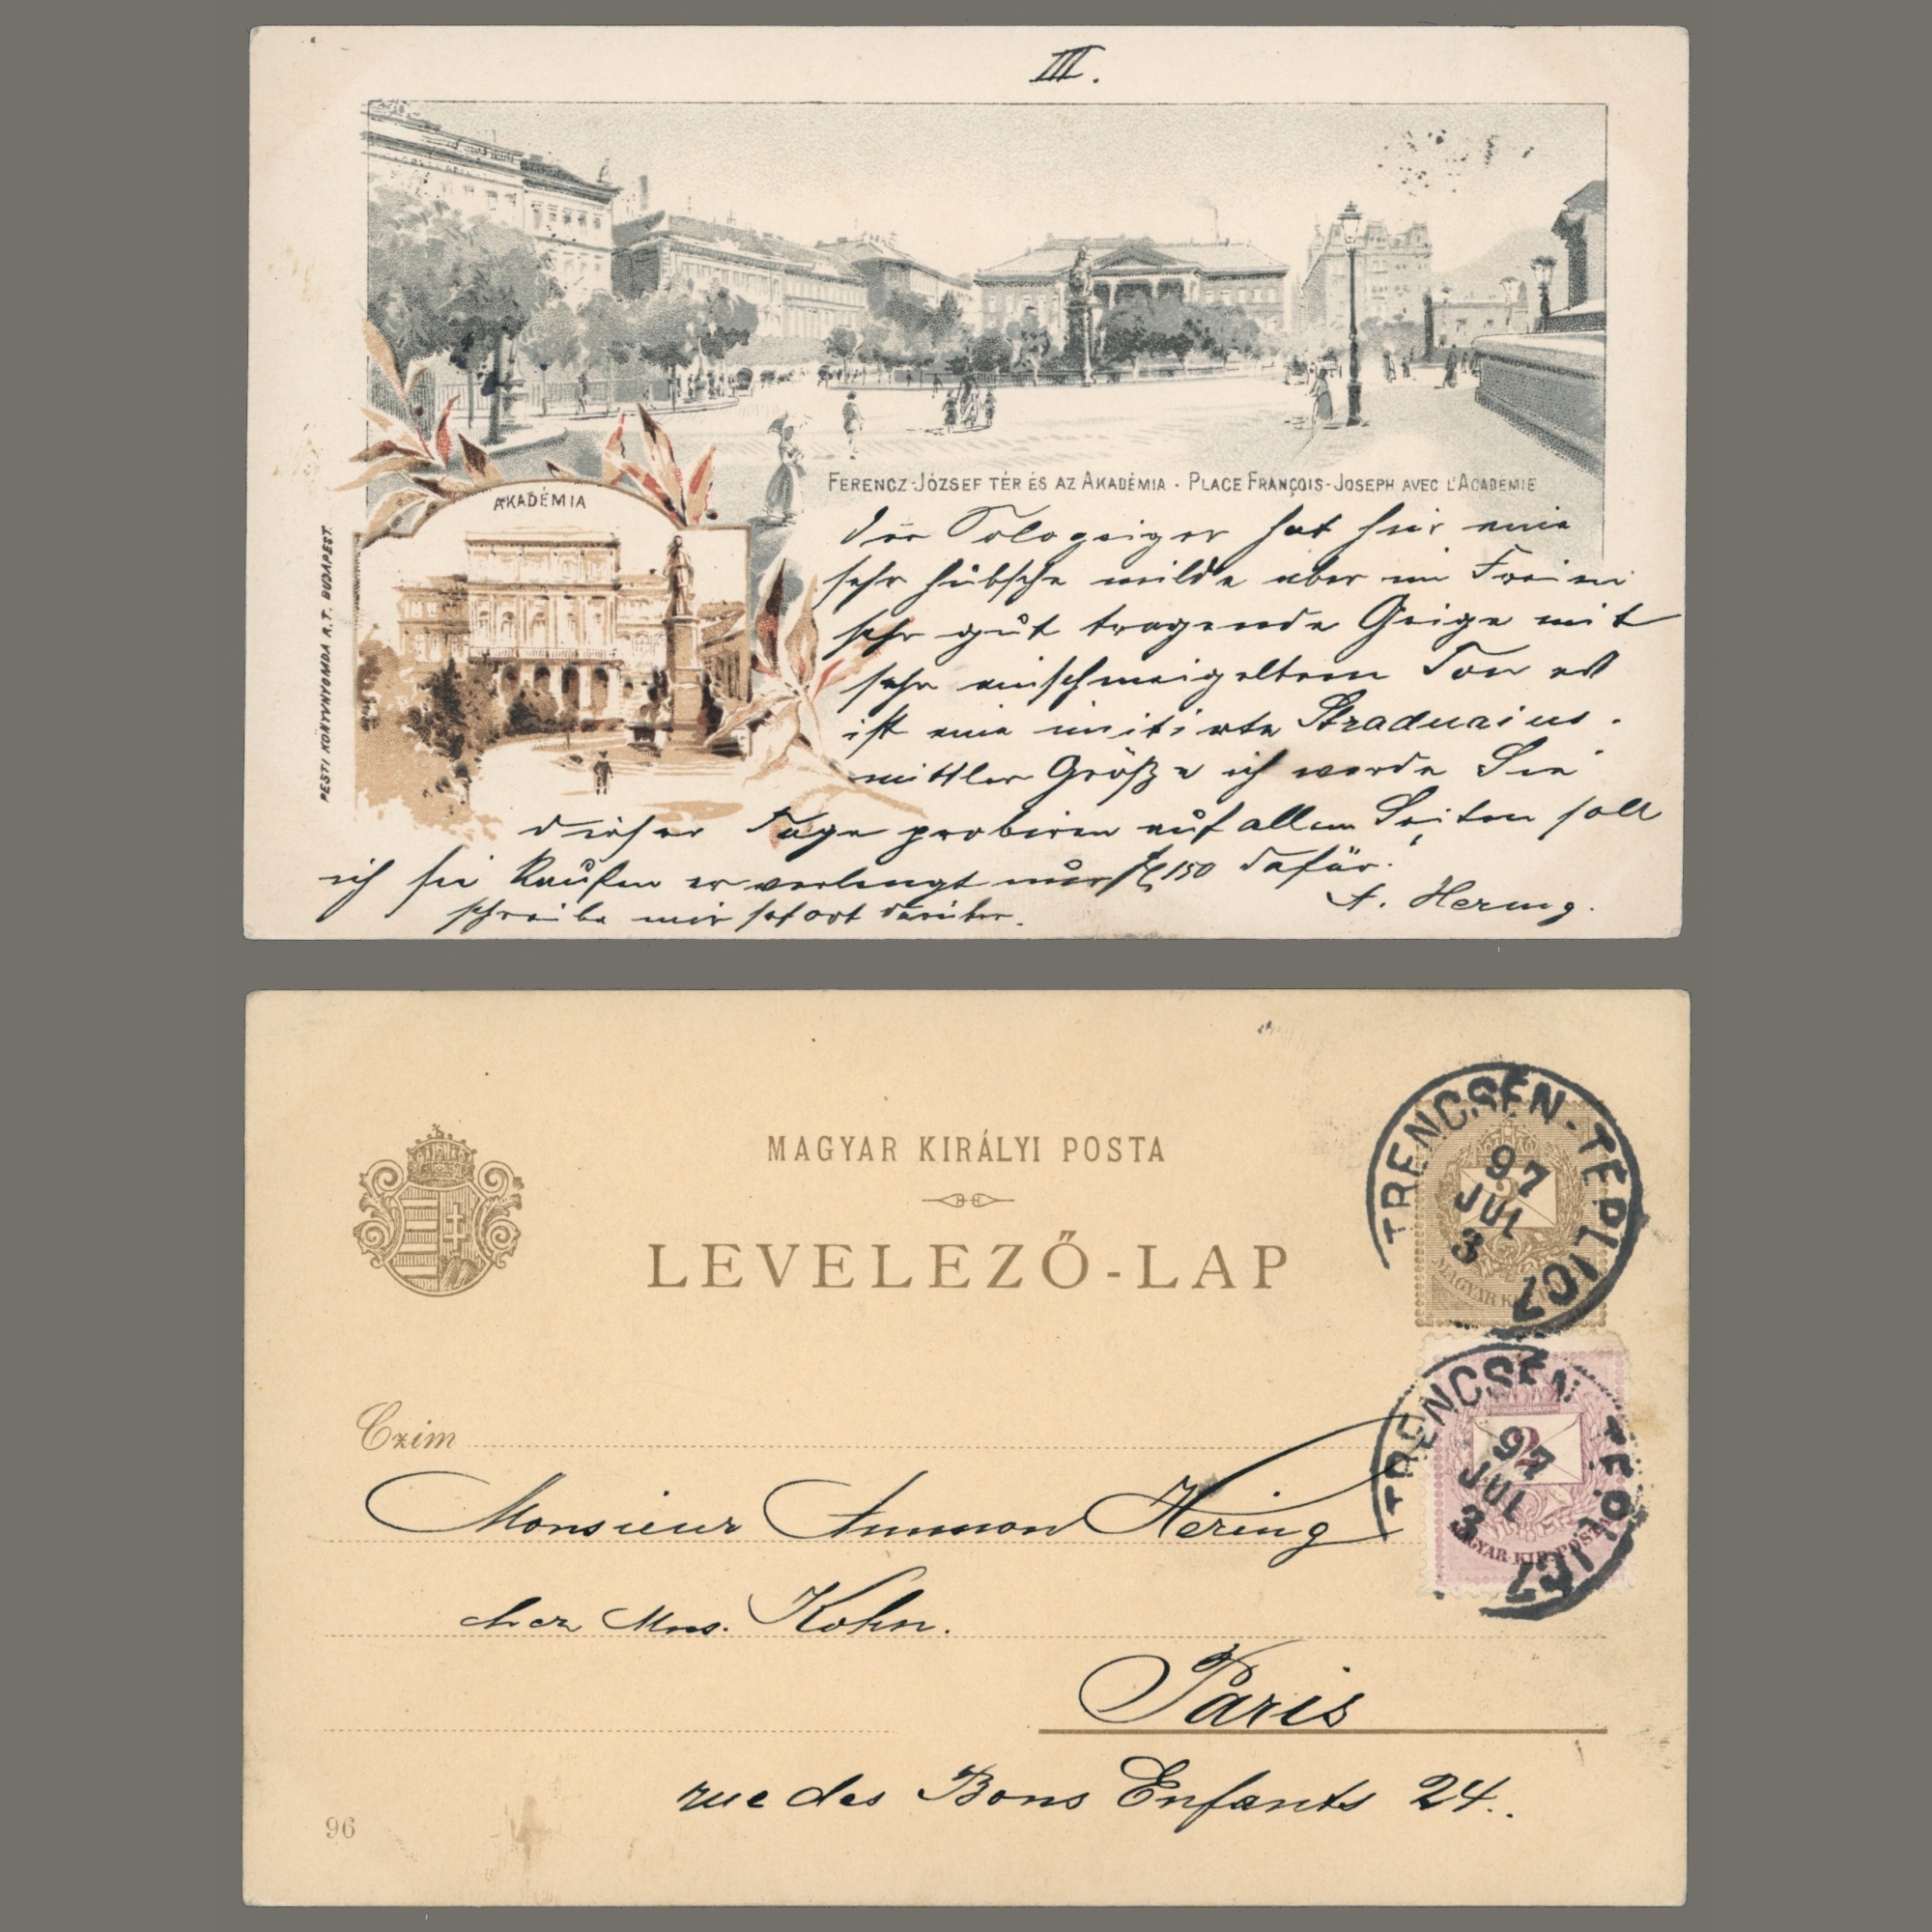 III.
FERENCZ-JÓZSEF TÉR ÉS AZ AKADÉMIA · PLACE FRANÇOIS-JOSEPH AVEC L'ACADEMIE
AKADÉMIA
PESTI KÖNYVNYOMDA R.T. BUDAPEST.
der Sologeiger hat hier eine
sehr hübsche milde aber im Freien
sehr gut tragende Geige mit
sehr Ton es
ist eine imitirte
mittler Größe ich werde Sie
dieser Tage probiren auf allen Seiten soll
ich sie kaufen er verlangt nur 150 dafür.
schreibe mir sofort darüber.
A. Hering.
MAGYAR KIRÁLYI POSTA
LEVELEZŐ-LAP
TRENCSÉN-TEPLICZ
97
JUL
3
MAGYAR
TRENCSÉN TEPLICZ
2
97
JUL
3
MAGYAR KIR. POSTA
Czim
Monsieur Ammon Hering
chez Mns. Kohn.
Paris
rue des Bons Enfants 24.
96